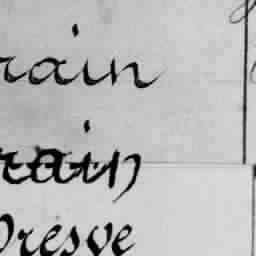 rain
rain
Dresve